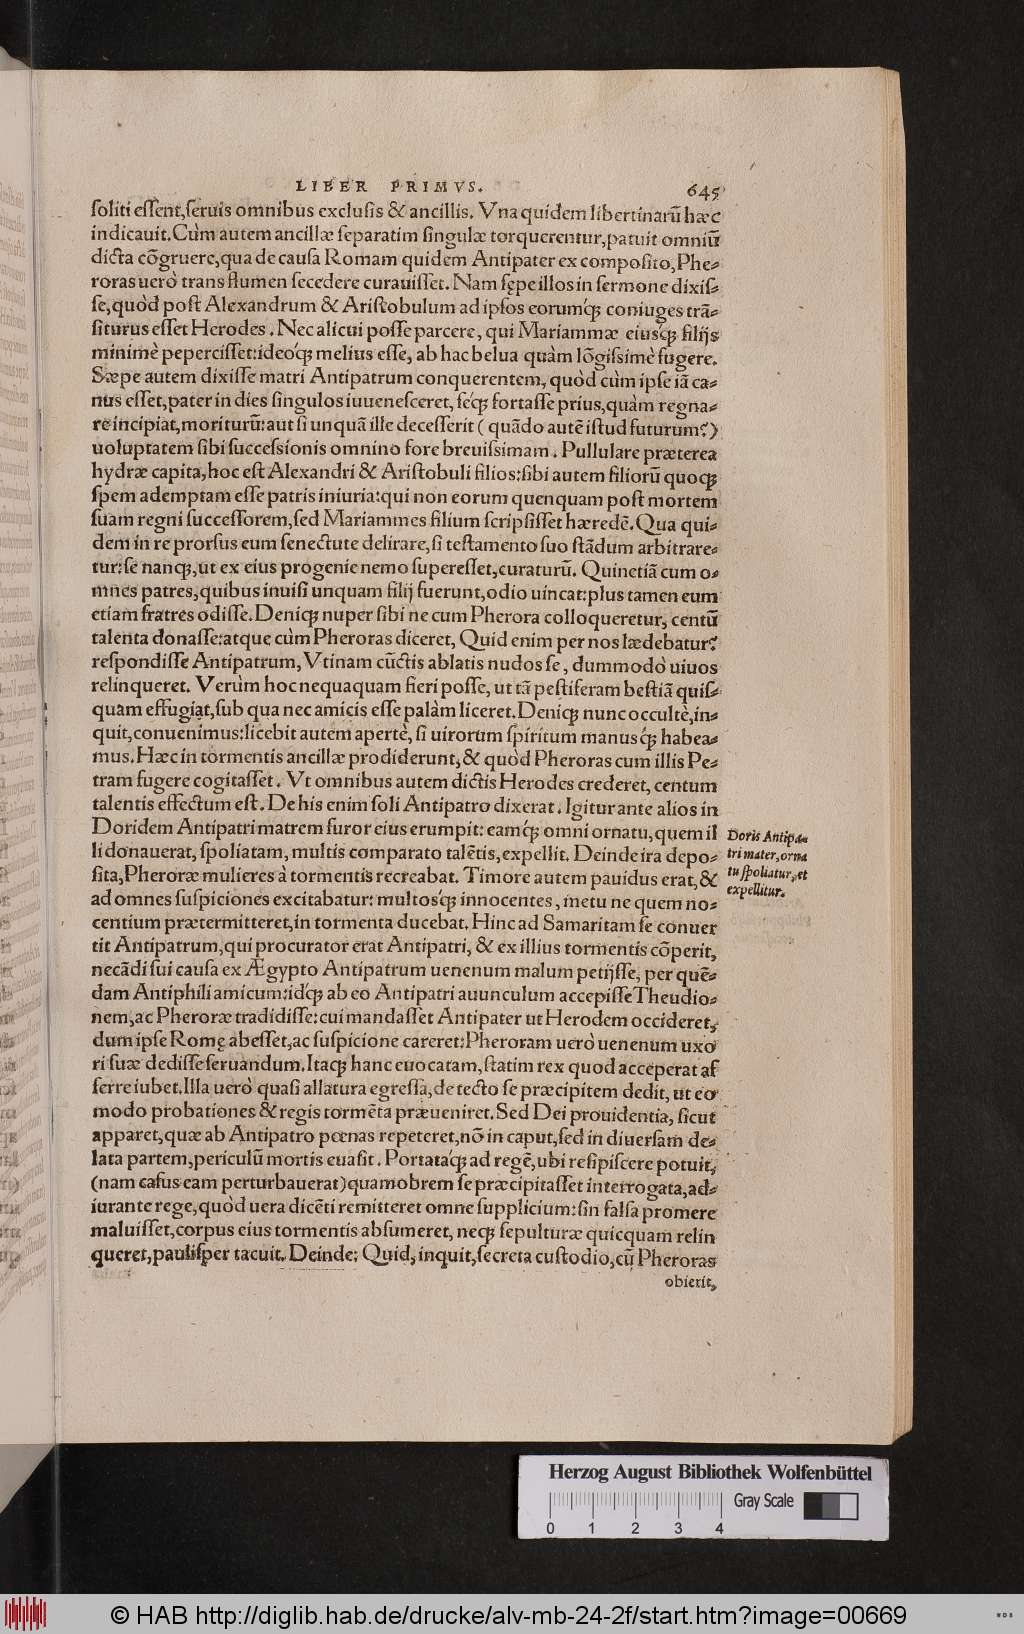 LIBER PRIMVS. 645
soliti essent, seruis omnibus exclusis & ancillis. Vna quidem libertinarũ hæc
indicauit. Cùm autem ancillæ separatim singulæ torquerentur, patuit omniũ
dicta cõgruere, qua de causa Romam quidem Antipater ex composito, Phe-
roras uerò trans flumen secedere curauisset. Nam sępe illos in sermone dixis-
se, quòd post Alexandrum & Aristobulum ad ipsos eorumq́ꝫ coniuges trã-
siturus esset Herodes. Nec alicui posse parcere, qui Mariammæ eiusq́ꝫ filijs
minimè pepercisset: ideoq́ꝫ melius esse, ab hac belua quàm lõgissimè fugere.
Sæpe autem dixisse matri Antipatrum conquerentem, quòd cùm ipse iã ca-
nus esset, pater in dies singulos iuuenesceret, seq́ꝫ fortasse prius, quàm regna-
re incipiat, moriturũ: aut si unquã ille decesserit (quãdo autẽ istud futurum?)
uoluptatem sibi successionis omnino fore breuissimam. Pullulare præterea
hydræ capita, hoc est Alexandri & Aristobuli filios: sibi autem filiorũ quoqꝫ
spem ademptam esse patris iniuria: qui non eorum quenquam post mortem
suam regni successorem, sed Mariammes filium scripsisset hæredẽ. Qua qui-
dem in re prorsus eum senectute delirare, si testamento suo stãdum arbitrare-
tur: se nanqꝫ, ut ex eius progenie nemo superesset, curaturũ. Quinetiã cum o-
mnes patres, quibus inuisi unquam filij fuerunt, odio uincat: plus tamen eum
etiam fratres odisse. Deniqꝫ nuper sibi ne cum Pherora colloqueretur, centũ
talenta donasse: atque cùm Pheroras diceret, Quid enim per nos lædebatur?
respondisse Antipatrum, Vtinam cũctis ablatis nudos se, dummodò uiuos
relinqueret. Verùm hoc nequaquam fieri posse, ut tã pestiferam bestiã quis-
quam effugiat, sub qua nec amicis esse palàm liceret. Deniqꝫ nunc occultè, in-
quit, conuenimus: licebit autem apertè, si uirorum spiritum manusq́ꝫ habea-
mus. Hæc in tormentis ancillæ prodiderunt, & quòd Pheroras cum illis Pe-
tram fugere cogitasset. Vt omnibus autem dictis Herodes crederet, centum
talentis effectum est. De his enim soli Antipatro dixerat. Igitur ante alios in
Doridem Antipatri matrem furor eius erumpit: eamq́ꝫ omni ornatu, quem il
li donauerat, spoliatam, multis comparato talẽtis, expellit. Deinde ira depo-
sita, Pheroræ mulieres à tormentis recreabat. Timore autem pauidus erat, &
ad omnes suspiciones excitabatur: multosq́ꝫ innocentes, metu ne quem no-
centium prætermitteret, in tormenta ducebat. Hinc ad Samaritam se conuer
tit Antipatrum, qui procurator erat Antipatri, & ex illius tormentis cõperit,
necãdi sui causa ex Ægypto Antipatrum uenenum malum petijsse, per quẽ-
dam Antiphili amicum: idqꝫ ab eo Antipatri auunculum accepisse Theudio-
nem, ac Pheroræ tradidisse: cui mandasset Antipater ut Herodem occideret,
dum ipse Romę abesset, ac suspicione careret: Pheroram uerò uenenum uxo
ri suæ dedisse seruandum. Itaqꝫ hanc euocatam, statim rex quod acceperat af
ferre iubet. Illa uerò quasi allatura egressa, de tecto se præcipitem dedit, ut eo
modo probationes & regis tormẽta præueniret. Sed Dei prouidentia, sicut
apparet, quæ ab Antipatro pœnas repeteret, nõ in caput, sed in diuersam de-
lata partem, periculũ mortis euasit. Portataq́ꝫ ad regẽ, ubi resipiscere potuit,
(nam casus eam perturbauerat) quamobrem se præcipitasset interrogata, ad-
iurante rege, quòd uera dicẽti remitteret omne supplicium: sin falsa promere
maluisset, corpus eius tormentis absumeret, neqꝫ sepulturæ quicquam relin
queret, paulisper tacuit. Deinde: Quid, inquit, secreta custodio, cũ Pheroras
obierit,
Doris Antipa-
tri mater, orna
tu spoliatur, et
expellitur.
Herzog August Bibliothek Wolfenbüttel
Gray Scale
0 1 2 3 4
© HAB http://diglib.hab.de/drucke/alv-mb-24-2f/start.htm?image=00669